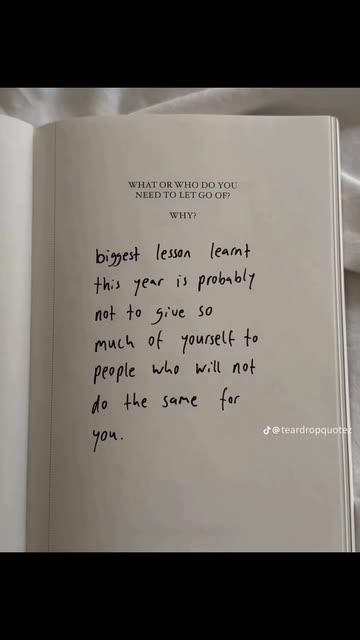 WHAT OR WHO DO YOU
NEED TO LET GO OF?
WHY?
biggest lesson learnt
this year is probably
not to give so
much of yourself to
people who will not
do the same for
you.
@teardropquotez